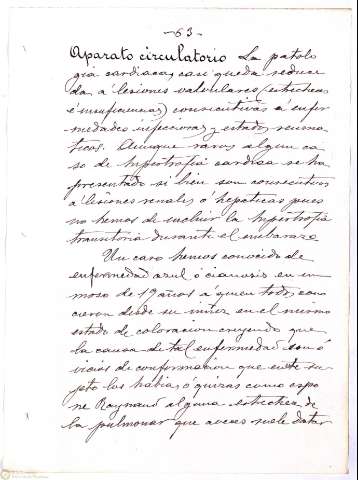 -63-
Aparato circulatorio La patolo
gia cardiaca, casi queda reduci
da á lesiones valvulares (estrecheces
é insuficiencias) consecutivas á enfer
medades infecciosas y estados reuma
ticos. Aunque raros algun ca
so de hipertrofia cardiaca se ha
presentado si bien son consecutivos
a lesiones renales ó hepaticas pues
no hemos de incluir la hipertrofia
transitoria durante el embarazo
Un caso hemos conocido de
enfermedad azul ó cianosis en un
mozo de 19 años á quien todos cono
cieron desde su niñez en el mismo
estado de coloracion creyendo que
la causa de tal enfermedad son ó
vicios de conformacion que este su
jeto los habia, ó quizas como espo
ne Raynaud alguna estrechez de
la pulmonar que á veces suele datar